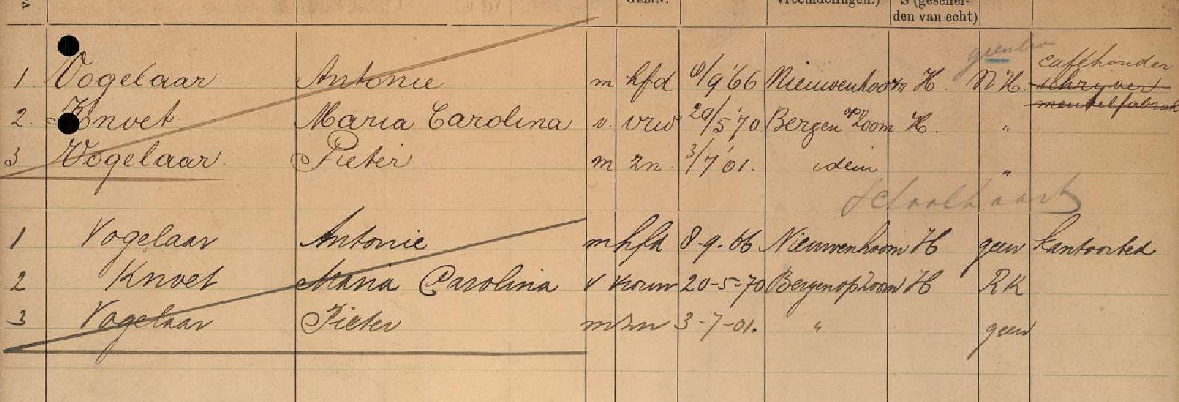 den van echt)
cafehouder
1 Vogelaar Antonie m hfd 8/9'66 Nieuwenhoorn H. N.H. schryver
meubelfabriek
2. Knoet Maria Carolina v. vrw 20/5'70 Bergen op Zoom H. "
3 Vogelaar Pieter m zn. 3/7'01. idem "
Schoolkaart
1 Vogelaar Antonie m hfd 8-9-66 Nieuwenhoorn H geen kantoorbed
2 Knoet Maria Carolina v vrouw 20-5-70 Bergen op Zoom H RK
3 Vogelaar Pieter m zn 3-7-01. " geen